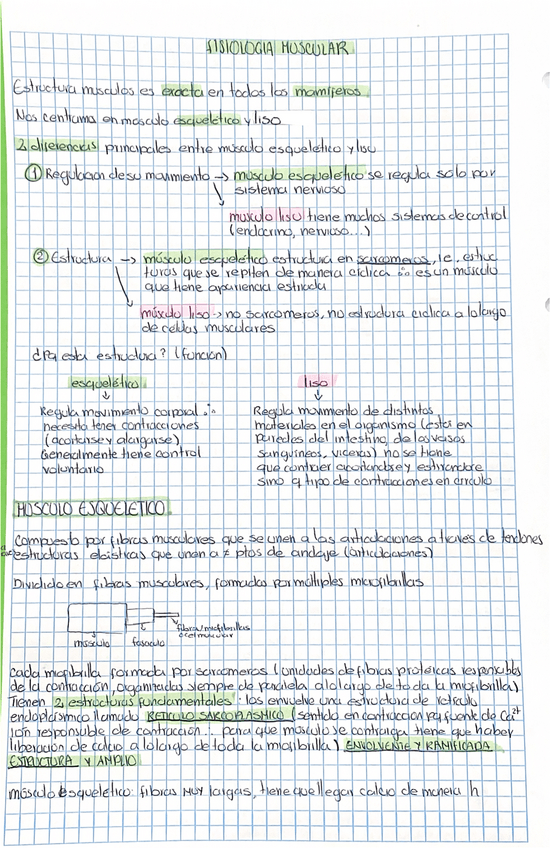 FISIOLOGIA MUSCULAR
Estructura musculos es exacta en todos los mamíferos.
Nos centramos en musculo esquelético y liso
2 diferencias principales entre músculo esquelético y liso
① Regulacion de su movimiento → músculo esquelético se regula solo por
sistema nervioso
musculo liso tiene muchos sistemas de control
(endocrino, nervioso...)
② Estructura → músculo esquelético estructura en sarcomeros, i.e. estruc
turas que se repiten de manera cíclica ∴ es un músculo
que tiene apariencia estriada
músculo liso → no sarcomeros, no estructura ciclica a lo largo
de celulas musculares
¿Pq esta estructura? (función)
esquelético
liso
Regula movimiento corporal ∴
necesito tener contracciones
(acortarse y alargarse)
Generalmente tiene control
voluntario
Regula movimiento de distintos
materiales en el organismo (está en
paredes del intestino, de los vasos
sanguíneos, viceras) no se tiene
que contraer acortandose y estirandose
sino q tipo de contracciones en circulo
MUSCULO ESQUELETICO.
Compuesto por fibras musculares que se unen a las articulaciones a traves de tendones
estructuras elásticas que unan a ≠ ptos de anclaje (articulaciones)
Dividido en fibras musculares, formadas por múltiples miofibrillas
músculo
fasciculo
fibras/miofibrillas
o cel muscular
Cada miofibrilla formada por sarcomeros (unidades de fibras protéicas responsables
de la contracción, organizadas siempre de paralela a lo largo de toda la miofibrilla)
Tienen 2 estructuras fundamentales: los envuelve una estructura de retículo
endoplásmico llamado RETICULO SARCOPLASMICO (sentido en contracción pq fuente de Ca²⁺
ion responsable de contracción ∴ para que músculo se contraiga tiene que haber
liberación de calcio a lo largo de toda la miofibrilla) ENVOLVENTE Y RAMIFICADA
ESTRUCTURA Y AMPLIO
músculo esquelético: fibras MUY largas, tiene que llegar calcio de manera h